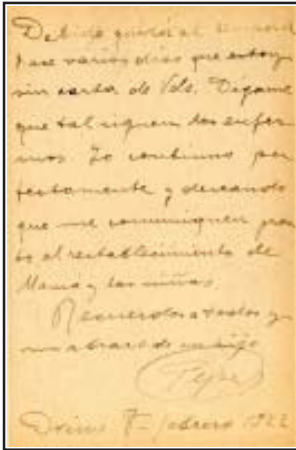 Debido quizá al temporal
hace varios dias que estoy
sin carta de Vds. Dígame
que tal siguen los enfer-
mos. Yo continuo per
fectamente y deseando
que me comuniquen pron
to el restablecimiento de
Mamá y las niñas.
Recuerdos a todos y
un abrazo de su hijo
Pepe
Drius 7- febrero 1922